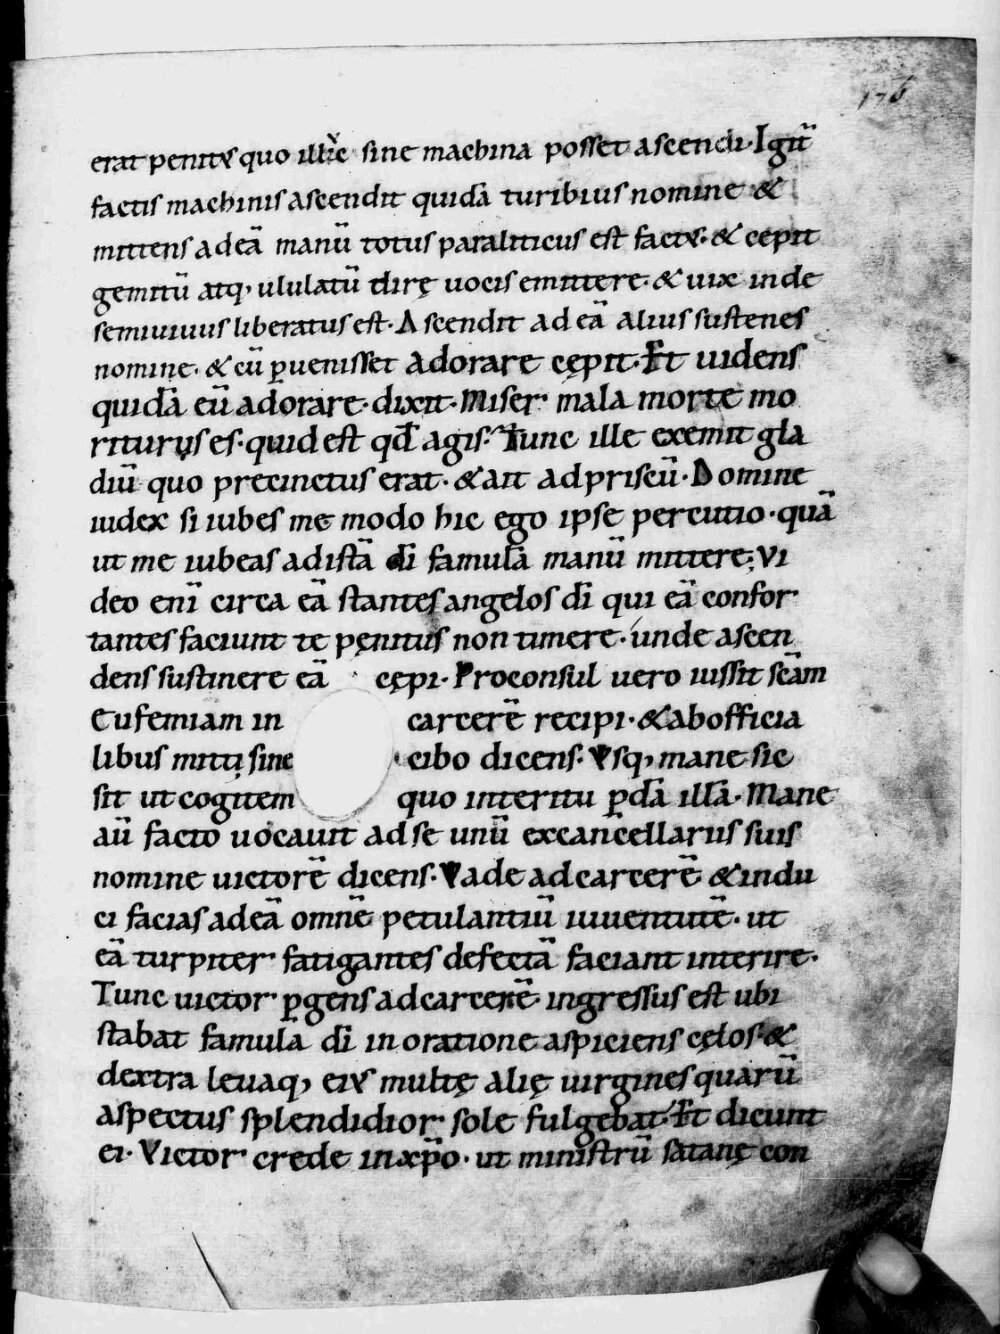 176
erat penitꝰ quo illꝰic sine machina posset ascendi. Igit̄
factis machinis ascendit quidā turibius nomine &
mittens ad eā manū totus paraliticus est factꝰ. & cepit
gemitū atq; ululatū dirę uocis emittere. & uix inde
semiuiuus liberatus est. Ascendit ad eā alius sustenes
nomine. & cū ꝑuenisset adorare cępit. Et uidens
quidā eū adorare. dixit. Miser mala morte mo
riturus es. quid est qđ agis. Tunc ille exemit gla
diū quo precinctus erat. & ait ad priscū. Domine
iudex si iubes me modo hic ego ipse percutio. quā
ut me iubeas ad istā dī famulā manū mittere; Vi
deo enī circa eā stantes angelos dī qui eā confor
tantes faciunt te pęnitus non timere. unde ascen
dens sustinere eā cępi. Proconsul uero iussit scām
Eufemiam in carcerē recipi. & ab officia
libus mitti sine cibo dicens. Vsq; mane sic
sit ut cogitem quo interitu ꝑdā illā. Mane
aū facto uocauit ad se unū ex cancellariis suis
nomine uictorē dicens. Vade ad carcerē & indu
ci facias ad eā omnē petulantiū iuuentutē. ut
eā turpiter fatigantes defectā faciant interire.
Tunc uictor ꝑgens ad carcerē. ingressus est ubi
stabat famula dī in oratione aspiciens cęlos. &
dextra leuaq; eiꝰ multę alię uirgines quarū
aspectus splendidior sole fulgebat. Et dicunt
ei. Victor crede in xp̄o. ut ministrū satanę con